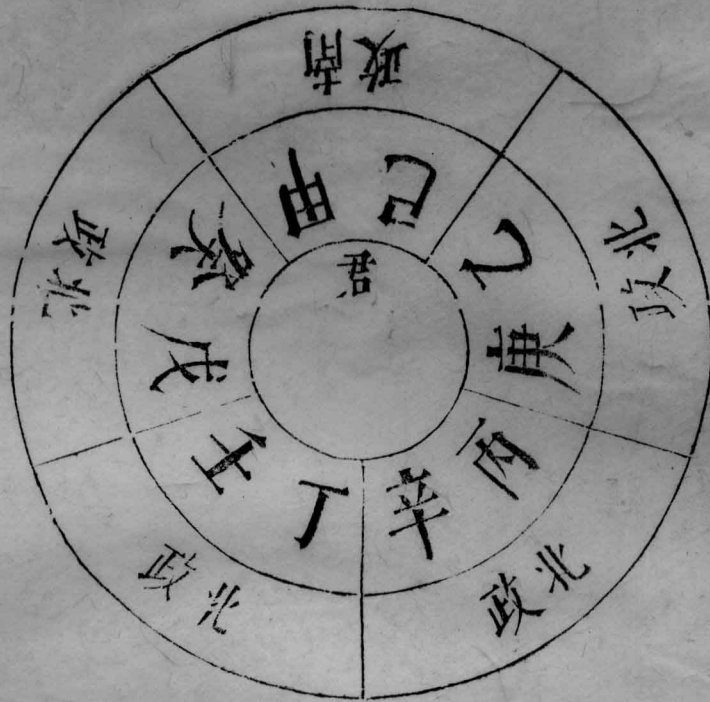 南政
甲己
北政
乙庚
北政
丙辛
北政
丁壬
北政
戊癸